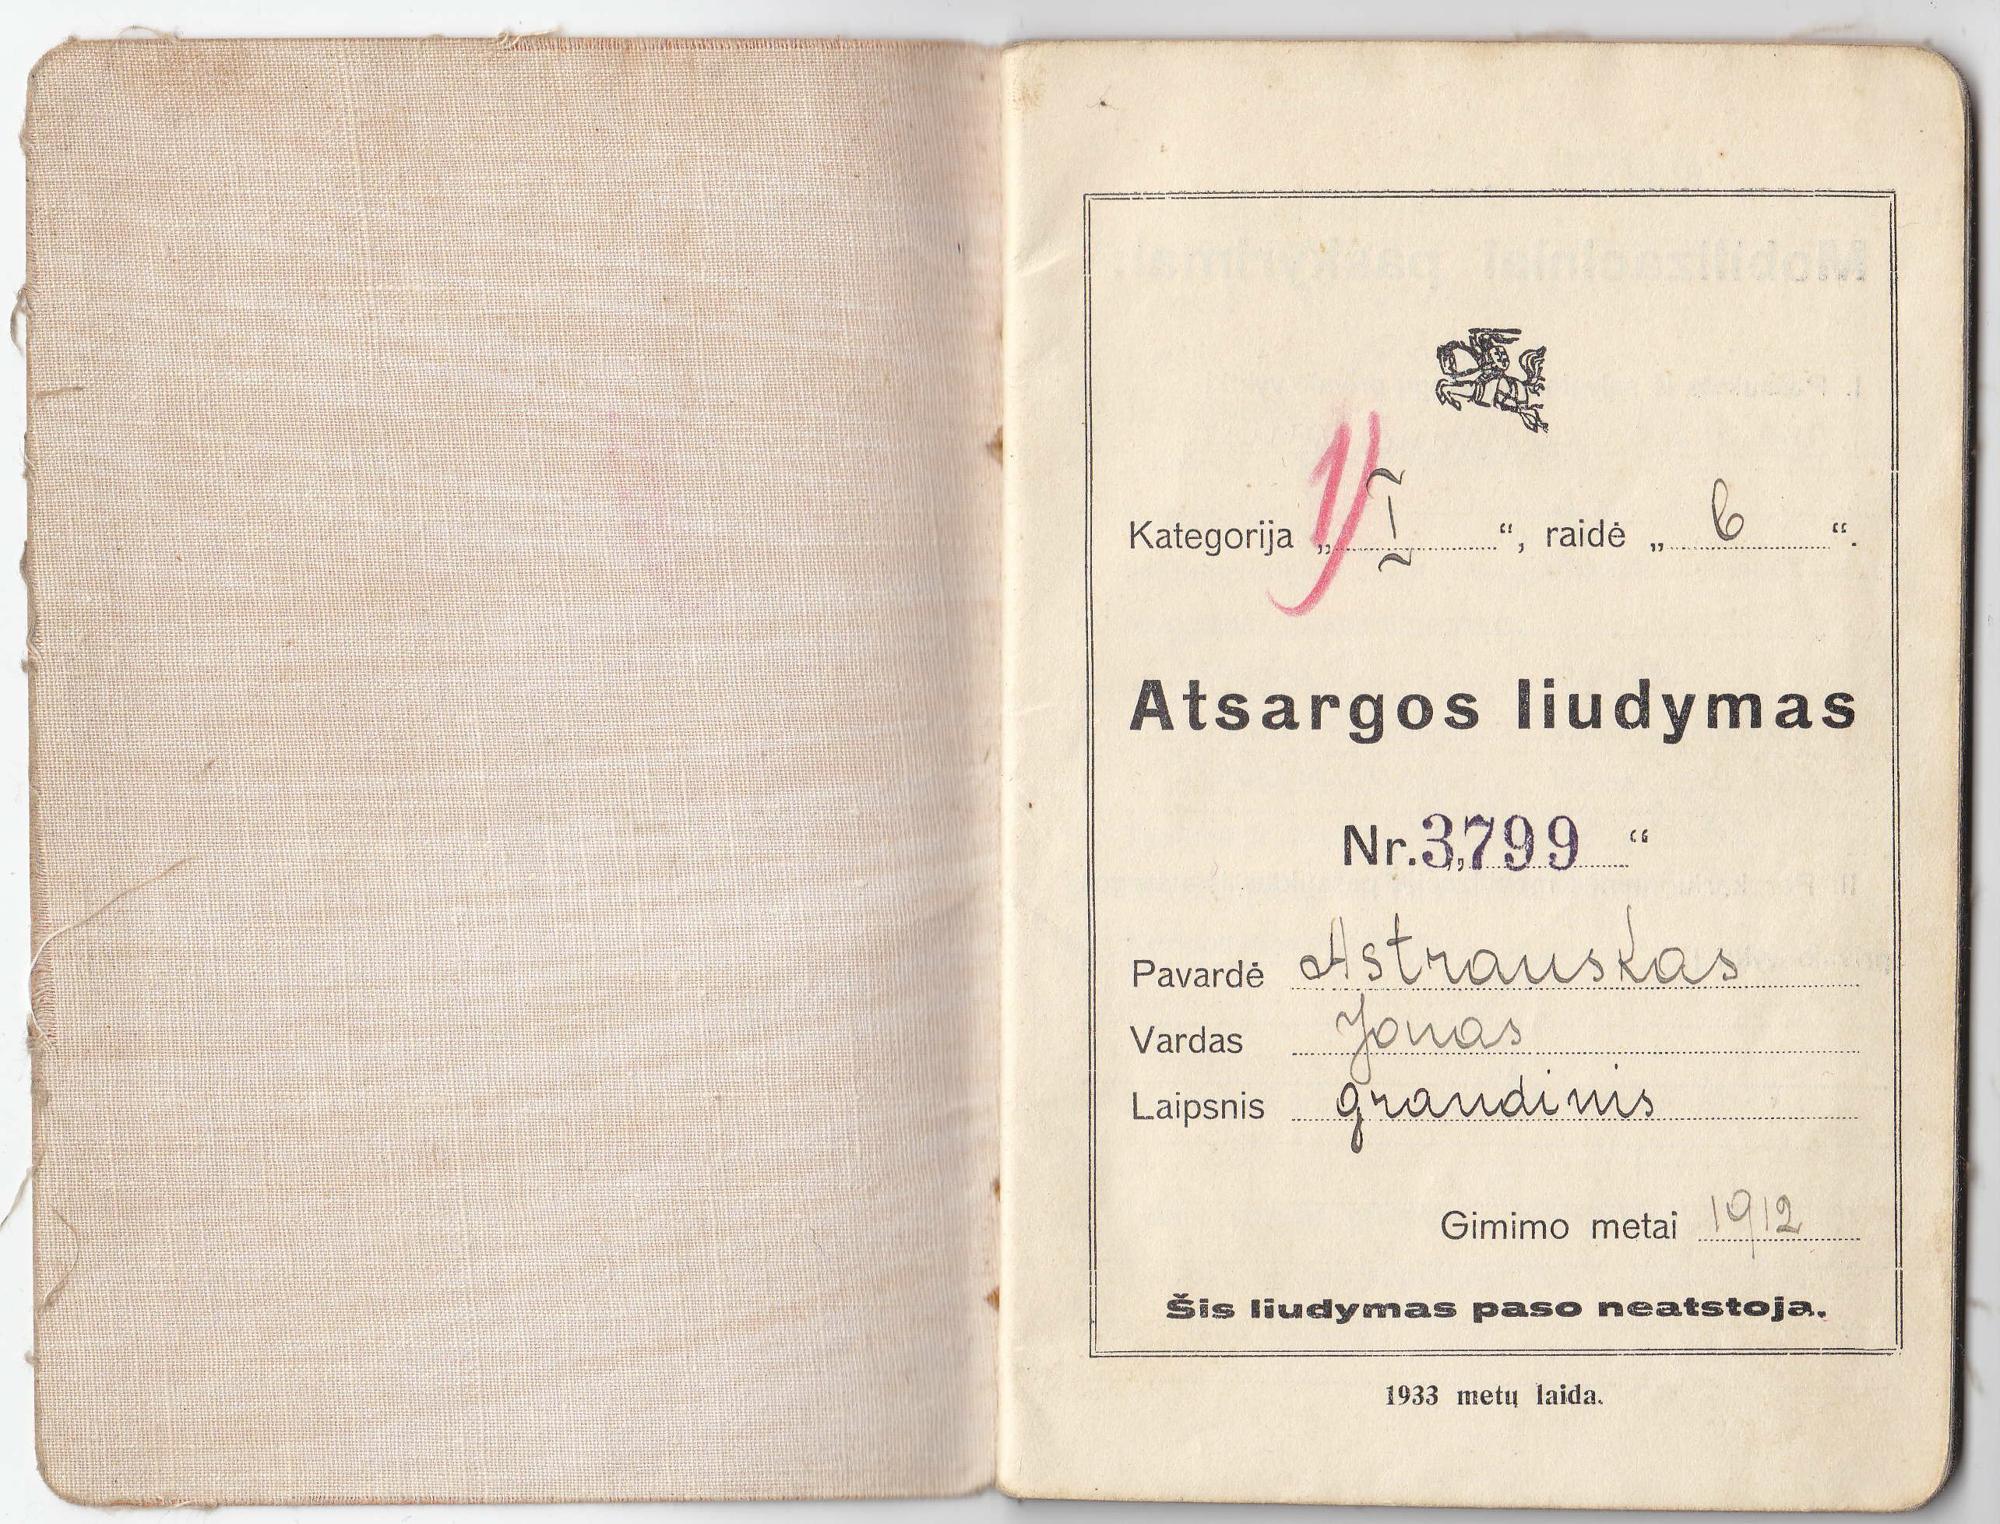 Kategorija „ I “, raidė „ b “.
Atsargos liudymas
Nr. „3799“
Pavardė Astrauskas
Vardas Jonas
Laipsnis grandinis
Gimimo metai 1912
Šis liudymas paso neatstoja.
1933 metų laida.